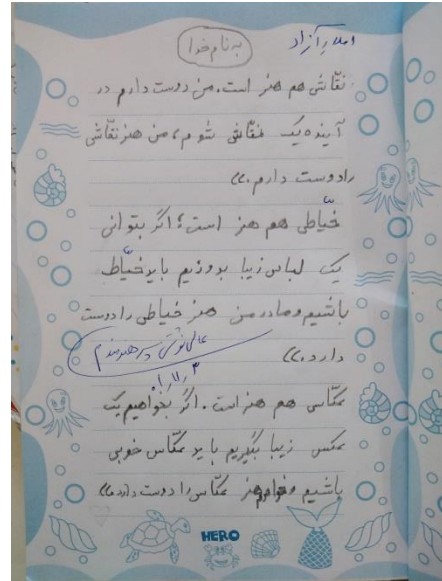 املاء آزاد
به نام خدا
نقّاشی هم هنر است. من دوست دارم در
آینده یک نقّاش شوم، من هنر نقّاشی
را دوست دارم.
خیّاطی هم هنر است؛ اگر بتوانی
یک لباس زیبا بدوزیم باید خیّاط
باشیم و مادر من هنر خیاطی را دوست
دارد.
عالی نوشتی پسر هنرمندم
۱٫۱۱٫۳
عکّاسی هم هنر است. اگر بخواهیم یک
عکس زیبا بگیریم باید عکّاس خوبی
باشیم و هنر عکّاسی را دوست دارد
HERO